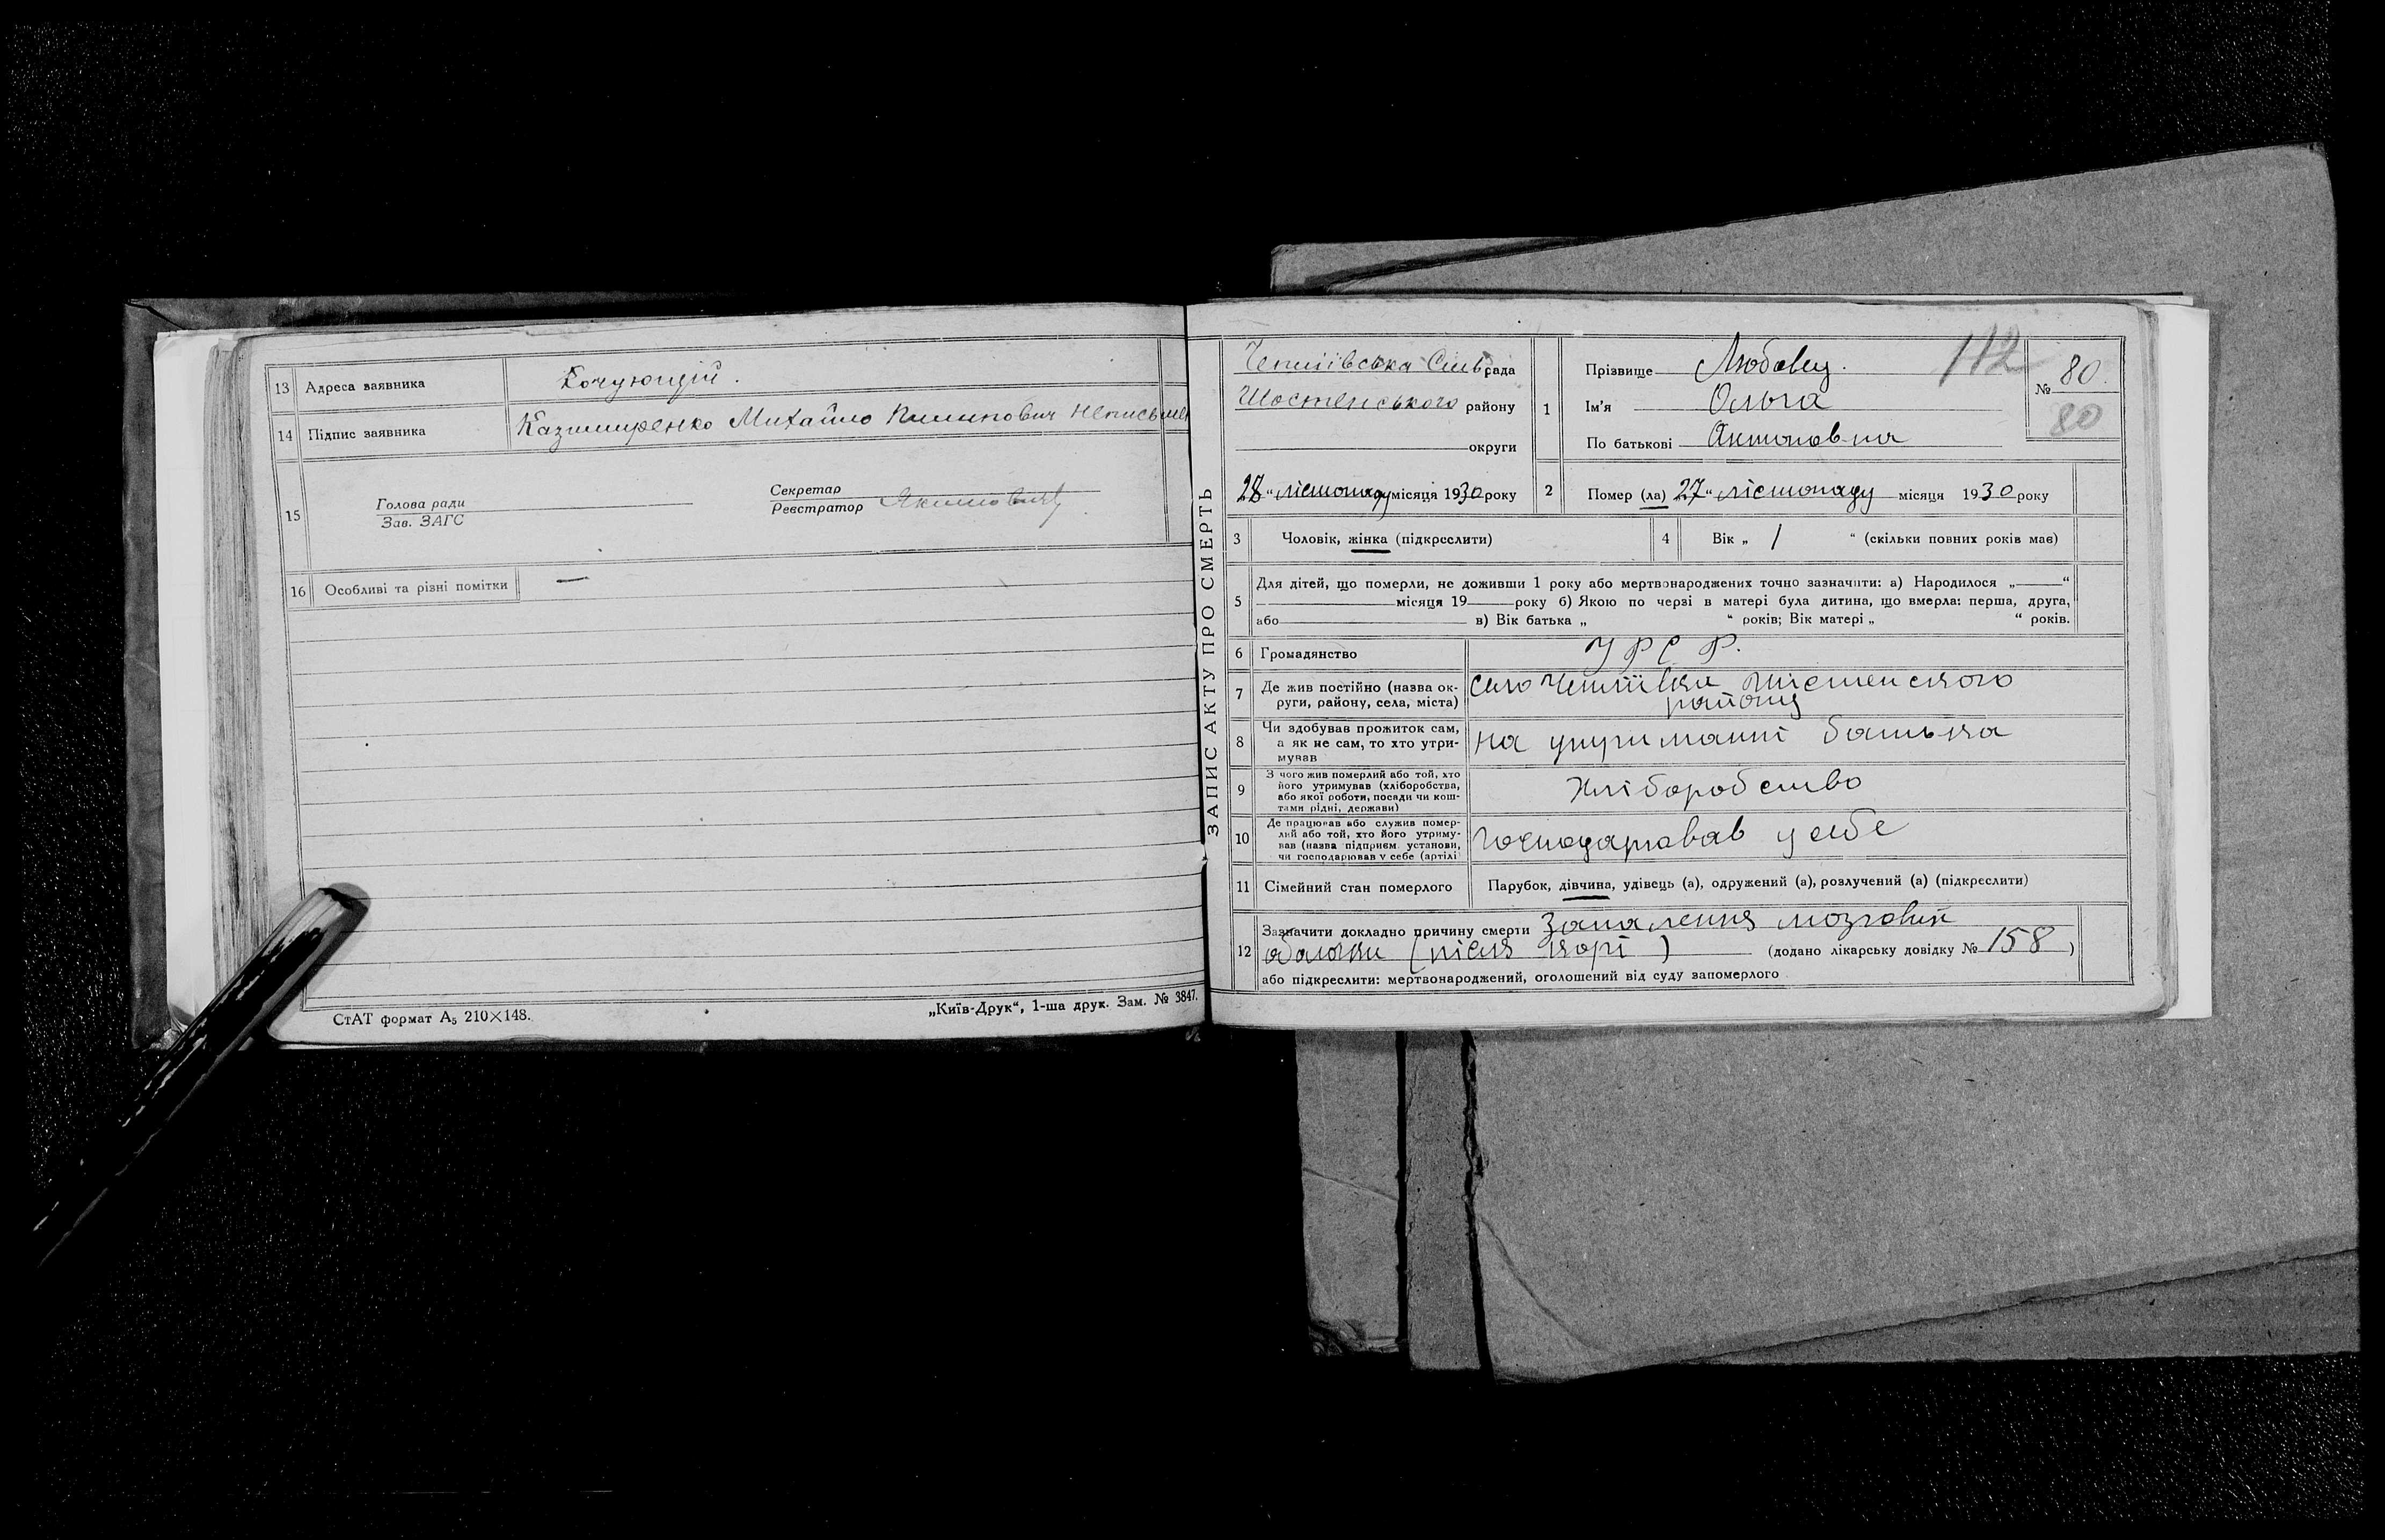 13 Адреса заявника Кочующій.
14 Підпис заявника Казимиренко Михайло Пилипович неписьмен
15 Голова ради
Зав. ЗАГС
Секретар
Реєстратор
16 Особливі та різні помітки —
СтАТ формат А₅ 210×148.
„Київ-Друк“, 1-ша друк. Зам. № 3847.
ЗАПИС АКТУ ПРО СМЕРТЬ
Чепліївська Сільрада
Шостенського району
округи
28 “ лістопаду місяця 1930 року
112
№ 80.
80
1 Прізвище Любавец.
Ім'я Ольга
По батькові Антоновна
2 Помер (ла) 27 “ лістопаду місяця 1930 року
3 Чоловік, жінка (підкреслити)
4 Вік „ 1 “ (скільки повних років має)
5 Для дітей, що померли, не доживши 1 року або мертвонароджених точно зазначити: а) Народилося „ — “
місяця 19 року б) Якою по черзі в матері була дитина, що вмерла: перша, друга,
або в) Вік батька „ “ років; Вік матері „ “ років.
6 Громадянство У Р С Р.
7 Де жив постійно (назва ок-
руги, району, села, міста)
село Чепліївки Шостенского
району
8 Чи здобував прожиток сам,
а як не сам, то хто утри-
мував
на утриманні батька
9 З чого жив померлий або той, хто
його утримував (хліборобства,
або якої роботи, посади чи кош-
тами рідні, держави)
Хліборобство
10 Де працював або служив помер-
лий або той, хто його утриму-
вав (назва підприєм. установи,
чи господарював у себе (артілі
Господарював у себе
11 Сімейний стан померлого Парубок, дівчина, удівець (а), одружений (а), розлучений (а) (підкреслити)
12 Зазначити докладно причину смерти Запалення мозговиї
оболочки (після корі) (додано лікарську довідку № 158)
або підкреслити: мертвонароджений, оголошений від суду запомерлого